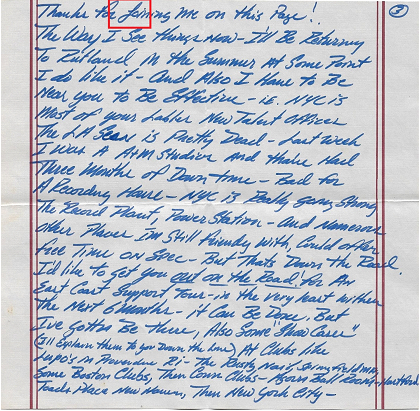 Thanks for Joining Me on this Page! ②
The Way I See things Now - I'll Be Returning
To Rutland in the Summer At Some Point
I do like it - And Also I Have to Be
Near you to Be Effective - i.e. NYC is
Most of your Label New Talent Officer
The LA Scene is Pretty Dead - Last Week
I was @ A+M Studios and they Had
Three Months of Down time - Bad for
A Recording House - NYC is Really Going Strong
The Record Plant, Power Station - And Numerous
other Places I'm Still Friendly With, Could offer
free Time on Spec - But Thats Down the Road.
I'd like to get you out on the Road! for An
East Coast Support Tour - in the very Least Within
The Next 6 Months - it Can Be Done. But
I've Gotta Be there, Also Some "Show Cases"
(I'll Explain them to you Down the Line) At Clubs like
Lupo's in Providence RI - The Rusty Nail, Springfield Mass
Some Boston Clubs, Then Conn Clubs - Agora Ball Room - Hartford
Toads Place New Haven, Then New York City -